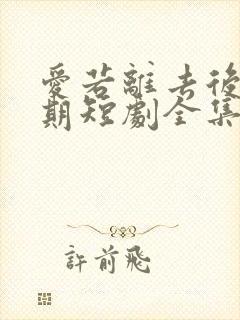 愛若離去後
期短劇全集
許前飛